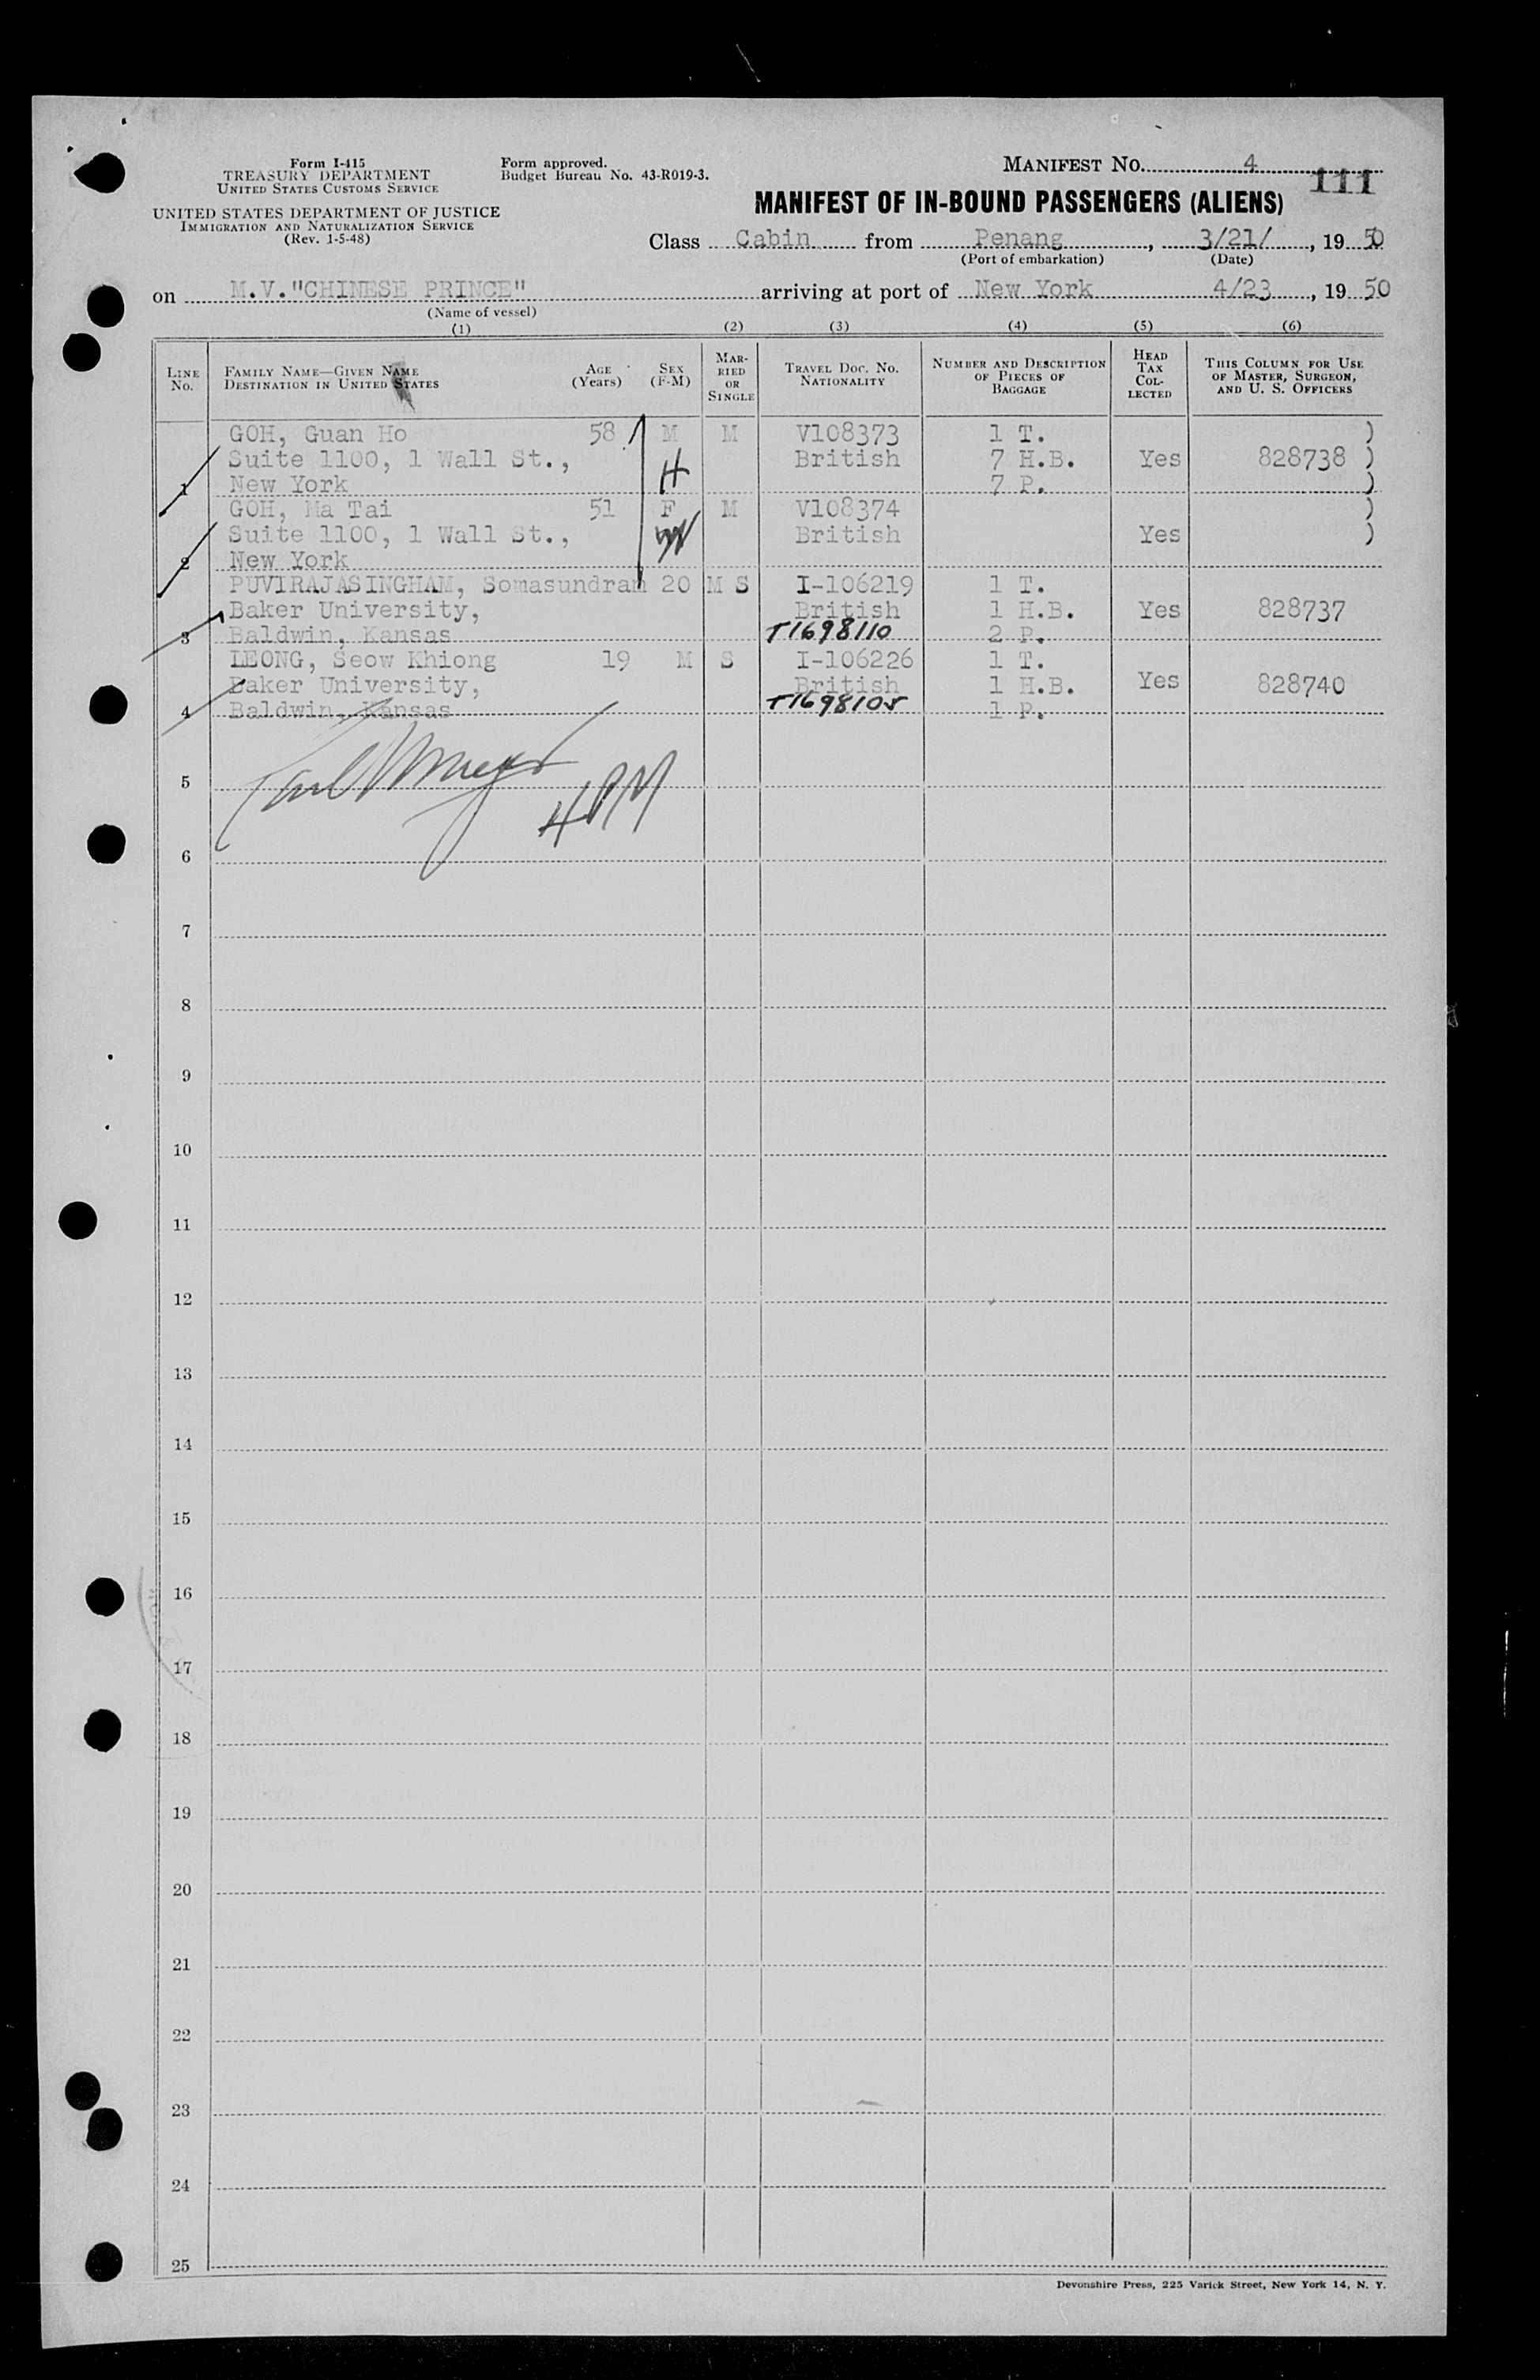 Form I-415
TREASURY DEPARTMENT
UNITED STATES CUSTOMS SERVICE
UNITED STATES DEPARTMENT OF JUSTICE
IMMIGRATION AND NATURALIZATION SERVICE
(Rev. 1-5-48)
Form approved.
Budget Bureau No. 43-R019-3.
MANIFEST NO. 4
111
MANIFEST OF IN-BOUND PASSENGERS (ALIENS)
Class Cabin from Penang, 3/21/, 1950
(Port of embarkation) (Date)
on M.V."CHINESE PRINCE" arriving at port of New York 4/23, 1950
(Name of vessel)
(1) (2) (3) (4) (5) (6)
LINE No. FAMILY NAME—GIVEN NAME DESTINATION IN UNITED STATES AGE (Years) SEX (F-M) MARRIED OR SINGLE TRAVEL DOC. NO. NATIONALITY NUMBER AND DESCRIPTION OF PIECES OF BAGGAGE HEAD TAX COLLECTED THIS COLUMN FOR USE OF MASTER, SURGEON, AND U. S. OFFICERS
GOH, Guan Ho 58 M M V108373 1 T. )
Suite 1100, 1 Wall St., H British 7 H.B. Yes 828738 )
1 New York 7 P. )
GOH, Ma Tai 51 F M V108374 )
Suite 1100, 1 Wall St., W British Yes )
2 New York
PUVIRAJASINGHAM, Somasundram 20 M S I-106219 1 T.
Baker University, British 1 H.B. Yes 828737
3 Baldwin, Kansas T1698110 2 P.
LEONG, Seow Khiong 19 M S I-106226 1 T.
Baker University, British 1 H.B. Yes 828740
4 Baldwin, Kansas T1698105 1 P.
5
4 PM
6
7
8
9
10
11
12
13
14
15
16
17
18
19
20
21
22
23
24
25
Devonshire Press, 225 Varick Street, New York 14, N. Y.